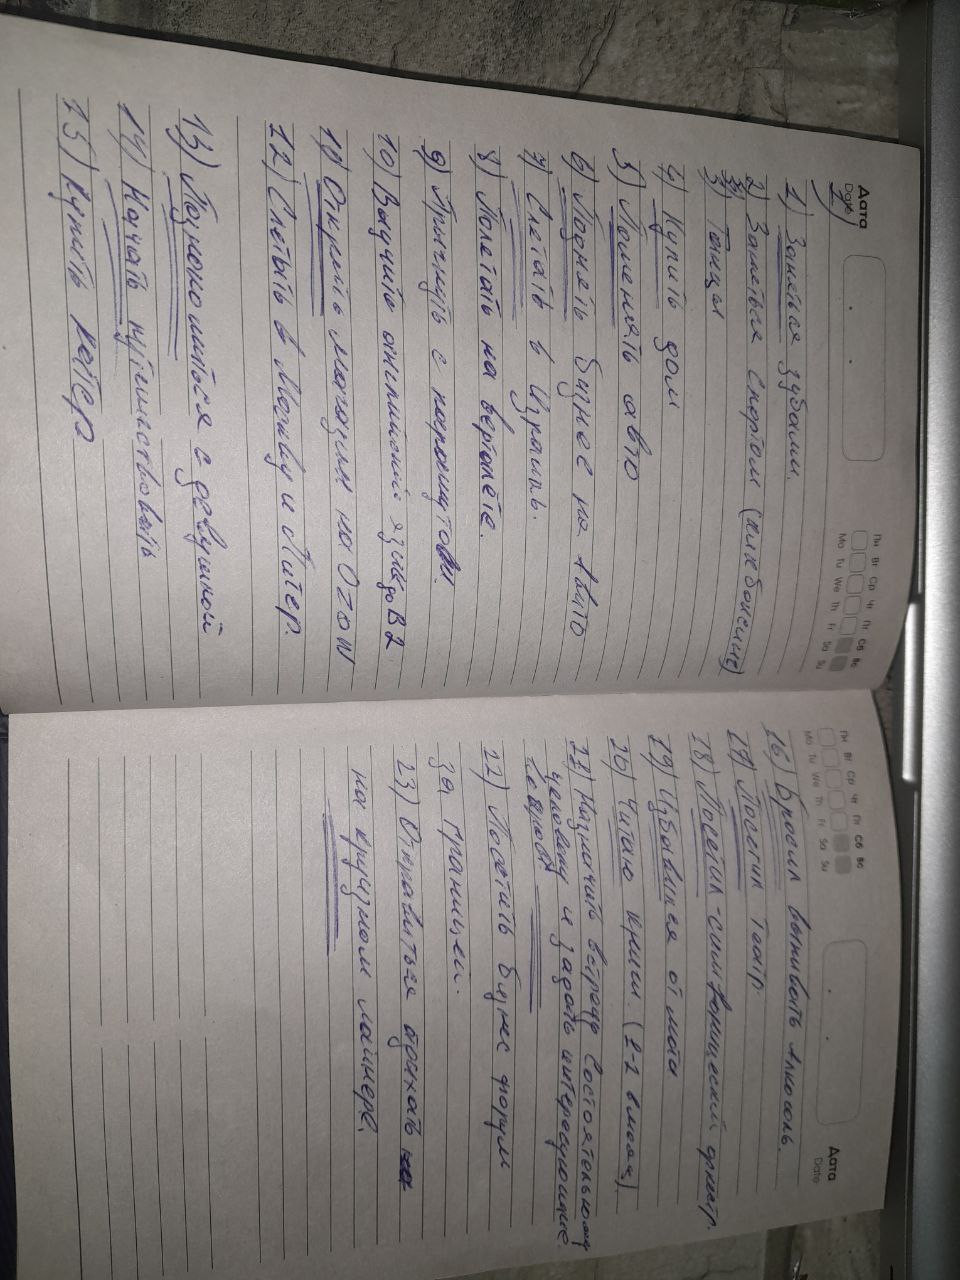 Дата
Date
Пн Вт Ср Чт Пт Сб Вс
Mo Tu We Th Fr Sa Su
1) Заняться зубами.
2) Заняться спортом (кикбоксинг)
3) Танцы
4) Купить дом
5) Поменять авто
6) Поднять бизнес на Авито
7) Слетать в Израиль.
8) Полетать на вертолёте.
9) Прыгнуть с парашутом.
10) Выучить английский язык до B2
11) Открыть магазин на OZON
12) Слетать в Москву и Питер.
13) Познакомиться с девушкой
14) Начать путешествовать
15) Купить катер
Пн Вт Ср Чт Пт Сб Вс
Mo Tu We Th Fr Sa Su
Дата
Date
16) Бросил выпивать алкоголь.
17) Посетил театр.
18) Посетил симфонический оркестр.
19) Избавился от мата
20) Читаю книги. (1-2 в месяц)
21) Назначить встречу состоятельному
человеку и задать интересующие
вопросы
22) Посетить бизнес форум
за границей.
23) Отправиться отдыхать
на круизном лайнере.